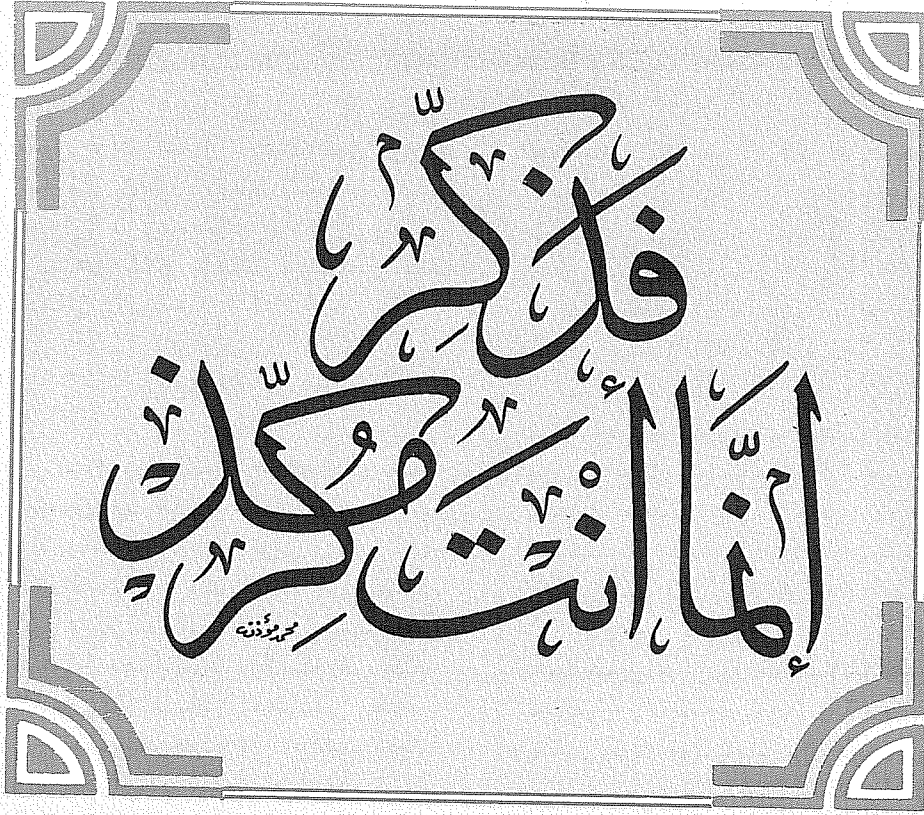 فَذَكِّرْ
إِنَّمَا أَنْتَ مُذَكِّرٌ
محمد مؤذن